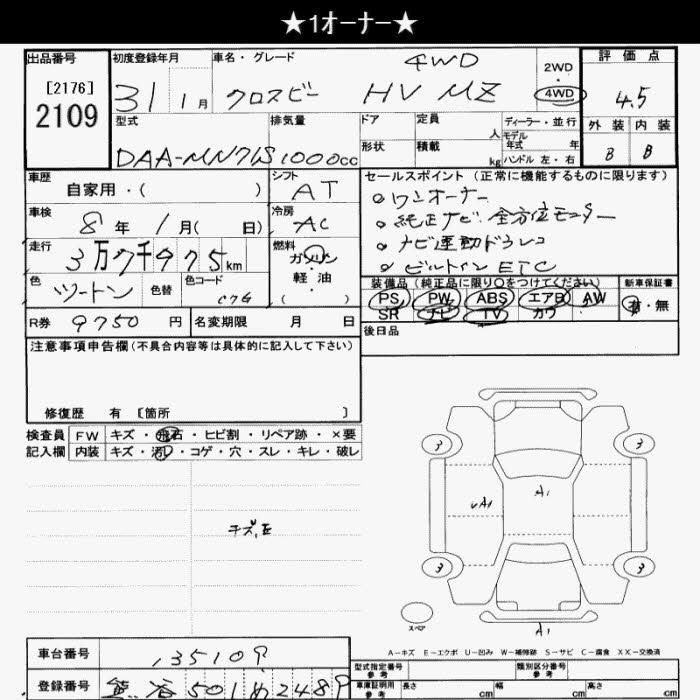 ★1オーナー★
出品番号
[2176]
2109
初度登録年月
31 1月
車名・グレード
4WD
クロスビー HV MZ
2WD
・
4WD
評価点
4.5
外装 内装
B B
型式
DAA-MN71S
排気量
1000cc
ドア
形状
定員
人
積載
kg
ディーラー・並行
モデル
年式 年
ハンドル 左・右
車歴
自家用・( )
シフト
AT
車検
8年 1月( 日)
冷房
AC
走行
3万7千975km
燃料
ガソリン
・
軽油
( )
色
ツートン
色替
色コード
C7G
R券 9750円
名変期限 月 日
セールスポイント(正常に機能するものに限ります)
○ワンオーナー
○純正ナビ 全方位モニター
○ナビ連動ドラレコ
○ビルトインETC
装備品(純正品に限り○をつけてください)
PS PW ABS エアB AW
SR ナビ TV カワ
新車保証書
有・無
後日品
注意事項申告欄(不具合内容等は具体的に記入して下さい)
修復歴 有 [箇所 ]
検査員
記入欄
FW キズ・飛石・ヒビ割・リペア跡・×要
内装 キズ・汚レ・コゲ・穴・スレ・キレ・破レ
キズ、E
3 3
A1
UA1
3 3
スペア
A1
A-キズ E-エクボ U-凹み W-補修跡 S-サビ C-腐食 XX-交換済
車台番号 135109
登録番号 熊谷 501 め 2489
型式指定番号
参考
類別区分番号
参考
車庫証明用
参考
長さ cm
幅 cm
高さ cm